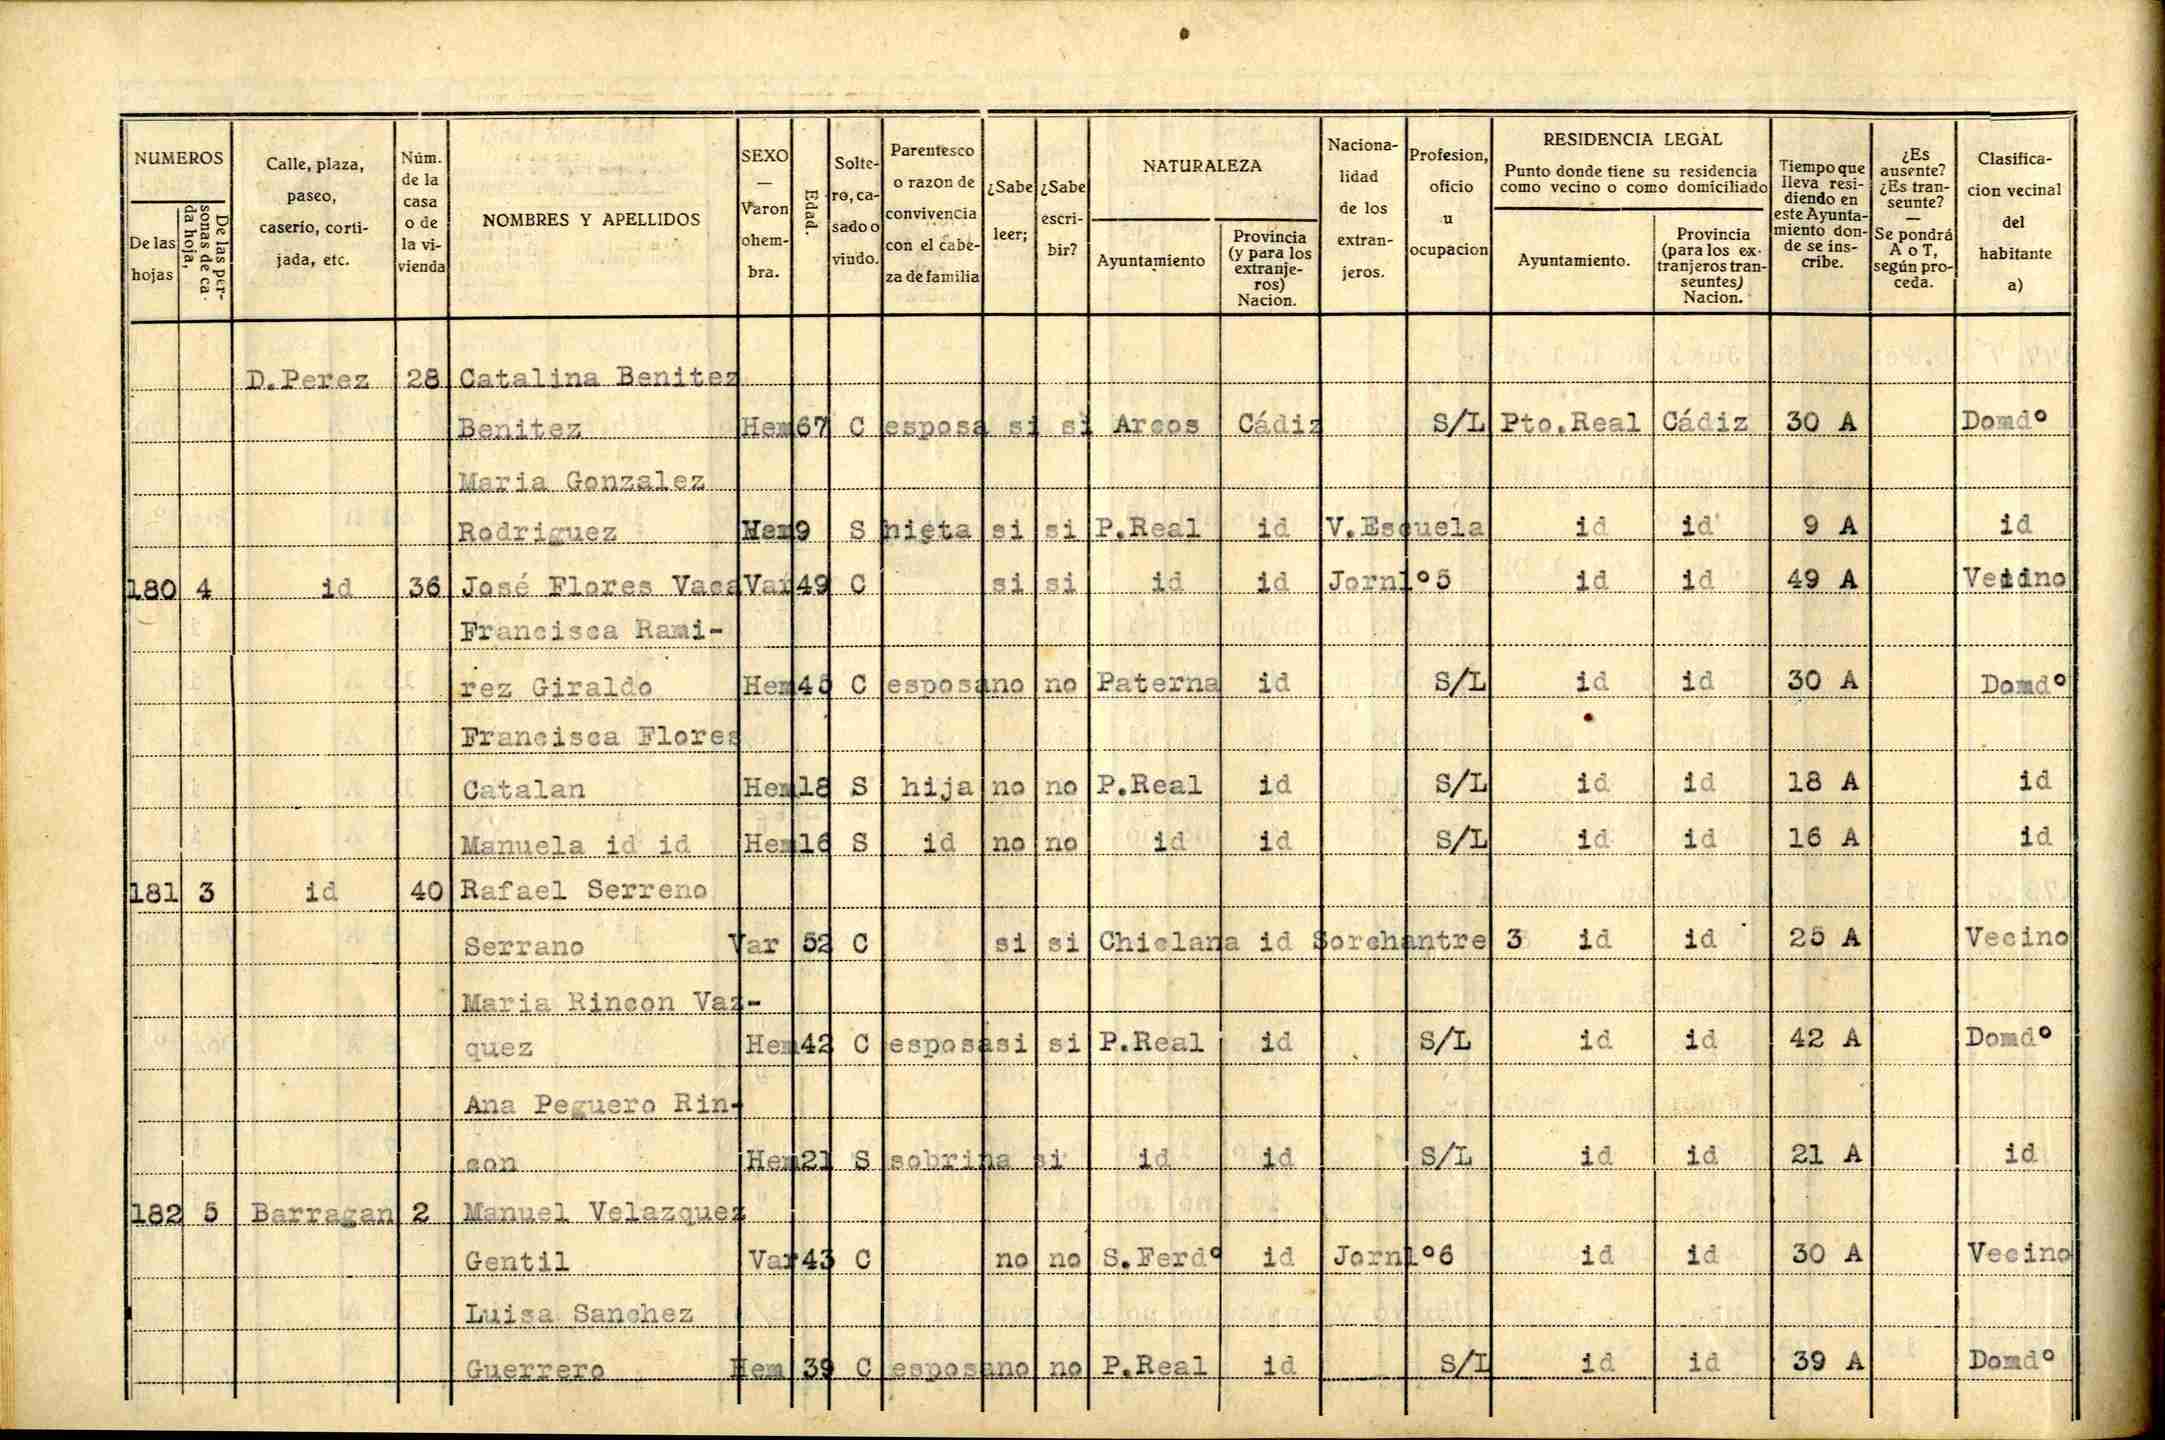 NUMEROS
De las hojas
De las personas de cada hoja,
Calle, plaza, paseo, caserio, cortijada, etc.
Núm. de la casa o de la vivienda
NOMBRES Y APELLIDOS
SEXO — Varon ohembra.
Edad.
Soltero, casado o viudo.
Parentesco o razon de convivencia con el cabeza de familia
¿Sabe leer;
¿Sabe escribir?
NATURALEZA
Ayuntamiento
Provincia (y para los extranjeros) Nacion.
Nacionalidad de los extranjeros.
Profesion, oficio u ocupacion
RESIDENCIA LEGAL
Punto donde tiene su residencia como vecino o como domiciliado
Ayuntamiento.
Provincia (para los extranjeros transeuntes) Nacion.
Tiempo que lleva residiendo en este Ayuntamiento donde se inscribe.
¿Es ausente? ¿Es transeunte? — Se pondrá A o T, según proceda.
Clasificacion vecinal del habitante a)
D.Perez 28 Catalina Benitez
Benitez Hem 67 C esposa si si Arcos Cádiz S/L Pto.Real Cádiz 30 A Domdº
Maria Gonzalez
Rodriguez Hem 9 S nieta si si P.Real id V.Escuela id id 9 A id
180 4 id 36 José Flores Vaca Var 49 C si si id id Jornlº5 id id 49 A Vecino
Francisca Rami-
rez Giraldo Hem 45 C esposa no no Paterna id S/L id id 30 A Domdº
Francisca Flores
Catalan Hem 18 S hija no no P.Real id S/L id id 18 A id
Manuela id id Hem 16 S id no no id id S/L id id 16 A id
181 3 id 40 Rafael Serreno
Serrano Var 52 C si si Chiclana id Sorchantre 3 id id 25 A Vecino
Maria Rincon Vaz-
quez Hem 42 C esposa si si P.Real id S/L id id 42 A Domdº
Ana Peguero Rin-
con Hem 21 S sobrina si id id S/L id id 21 A id
182 5 Barragan 2 Manuel Velazquez
Gentil Var 43 C no no S.Ferdº id Jornlº6 id id 30 A Vecino
Luisa Sanchez
Guerrero Hem 39 C esposa no no P.Real id S/L id id 39 A Domdº